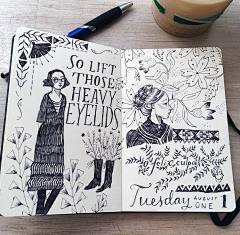 SO LIFT
THOSE
HEAVY
EYELIDS
Tuesday
AUGUST
ONE
1